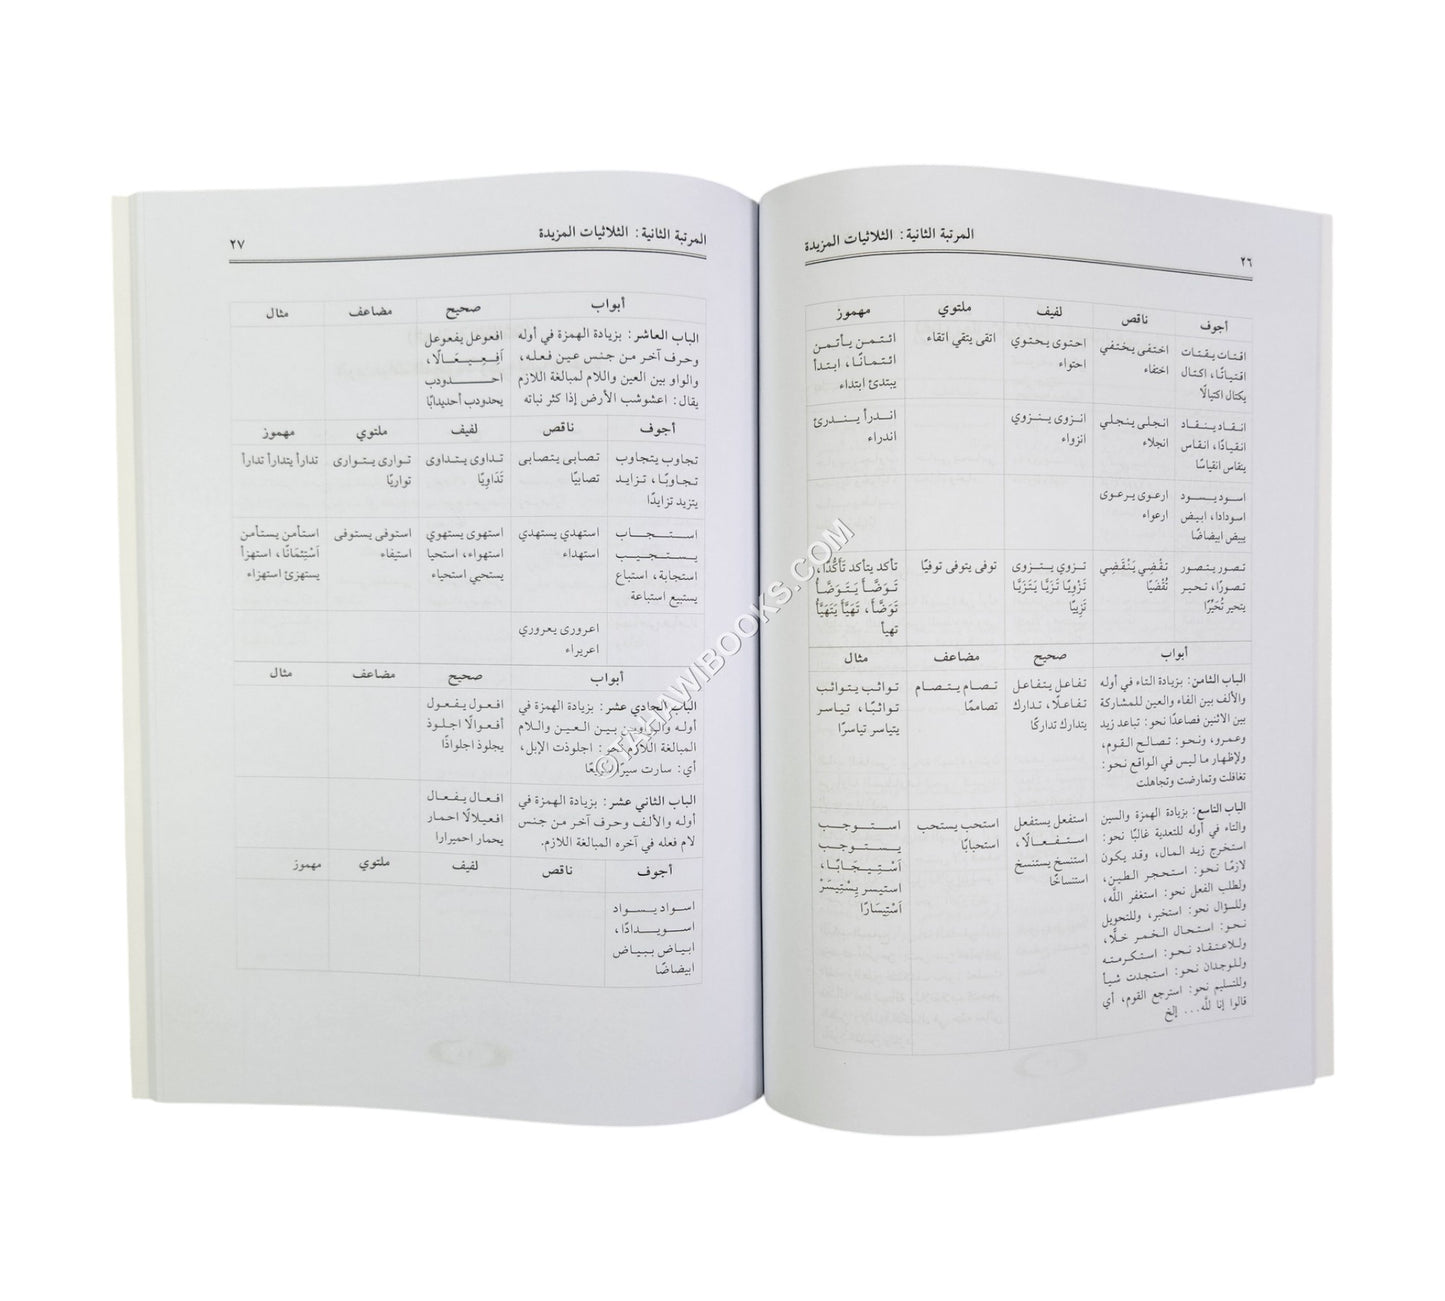 المرتبة الثانية: الثلاثيات المزيدة
٢٦
أجوف ناقص لفيف ملتوي مهموز
اقتات يقتات
اقتياتًا، اكتال
يكتال اكتيالًا
اختفى يختفي
اختفاء
احتوى يحتوي
احتواء
اتقى يتقي اتقاء
ائتمن يأتمن
ائتمانًا، ابتدأ
يبتدئ ابتداء
انقاد ينقاد
انقيادًا، انقاس
ينقاس انقياسًا
انجلى ينجلي
انجلاء
انزوى ينزوي
انزواء
اندرأ يندرئ
اندراء
اسود يسود
اسودادا، ابيض
يبيض ابيضاضًا
ارعوى يرعوى
ارعواء
تصور يتصور
تصورًا، تحير
يتحير تَحَيُّرًا
تَزوي يتزوى
تَزْوِيًا تَزَيَّا يَتَزَيَّا
تَزِييًا
توفى يتوفى توفيًا
تأكد يتأكد تَأَكُّدًا،
تَوَضَّأَ يَتَوَضَّأُ
تَوَضَّأً، تَهَيَّأَ يَتَهَيَّأُ
تهيأ
أبواب صحيح مضاعف مثال
الباب الثامن: بزيادة التاء في أوله
والألف بين الفاء والعين للمشاركة
بين الاثنين فصاعدًا نحو: تباعد زيد
وعمرو، ونحو: تصالح القوم،
ولإظهار ما ليس في الواقع نحو:
تغافلت وتمارضت وتجاهلت
تفاعل يتفاعل
تفاعلًا، تدارك
يتدارك تداركًا
تصام يتصام
تصاممًا
تواثب يتواثب
تواثبًا، تياسر
يتياسر تياسرًا
الباب التاسع: بزيادة الهمزة والسين
والتاء في أوله للتعدية غالبًا نحو:
استخرج زيد المال، وقد يكون
لازمًا نحو: استحجر الطين،
ولطلب الفعل نحو: استغفر اللَّه،
وللسؤال نحو: استخبر، وللتحويل
نحو: استحال الخمر خلًّا،
وللاعتقاد نحو: استكرمته
وللوجدان نحو: استجدت شيأ
وللتسليم نحو: استرجع القوم، أي
قالوا إنا للَّه... إلخ
استفعل يستفعل
استفعالًا،
استنسخ يستنسخ
استنساخًا
استحب يستحب
استحبابًا
استوجب
يستوجب
اَسْتِيجَابًا،
استيسر يِسْتَيسَرْ
اَسْتِيسَارًا
المرتبة الثانية: الثلاثيات المزيدة
٢٧
أبواب صحيح مضاعف مثال
الباب العاشر: بزيادة الهمزة في أوله
وحرف آخر من جنس عين فعله،
والواو بين العين واللام لمبالغة اللازم
يقال: اعشوشب الأرض إذا كثر نباته
افعوعل يفعوعل
اَفعِيعَالًا،
احدودب
يحدودب أحديدابًا
أجوف ناقص لفيف ملتوي مهموز
تجاوب يتجاوب
تجاوبًا، تزايد
يتزيد تزايدًا
تصابى يتصابى
تصابيًا
تداوى يتداوى
تَدَاوِيًا
توارى يتوارى
تواريًا
تدارأ يتدارأ تدارأ
استجاب
يستجيب
استجابة، استباع
يستبيع استباعة
استهدي يستهدي
استهداء
استهوى يستهوي
استهواء، استحيا
يستحيي استحياء
استوفى يستوفى
استيفاء
استأمن يستأمن
اَسْتِئمَانًا، استهزأ
يستهزئ استهزاء
اعرورى يعروري
اعريراء
أبواب صحيح مضاعف مثال
الباب الحادي عشر: بزيادة الهمزة في
أوله والواوين بين العين واللام
المبالغة اللازم نحو: اجلوذت الإبل،
أي: سارت سيرًا
افعول يفعول
أفعوالًا اجلوذ
يجلوذ اجلواذًا
الباب الثاني عشر: بزيادة الهمزة في
أوله والألف وحرف آخر من جنس
لام فعله في آخره المبالغة اللازم.
افعال يفعال
افعيلالًا احمار
يحمار احميرارا
أجوف ناقص لفيف ملتوي مهموز
اسواد يسواد
اسويدادًا،
ابياض يبياض
ابيضاضًا
©TAHAWIBOOKS.COM